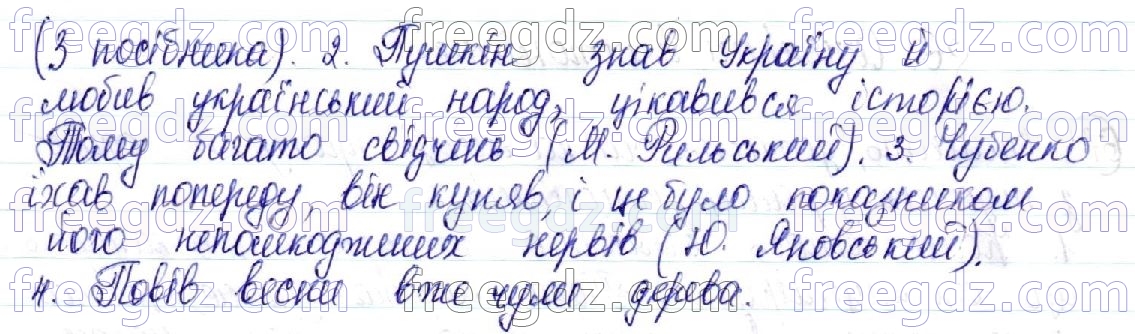 (З посібника). 2. Пушкін знав Україну й
любив український народ, цікавився історією.
Тому багато свідчень (М. Рильський). 3. Чубенко
їхав попереду, він куняв, і це було показником
його непошкоджених нервів (Ю. Яновський).
4. Повів весни вже чули дерева.